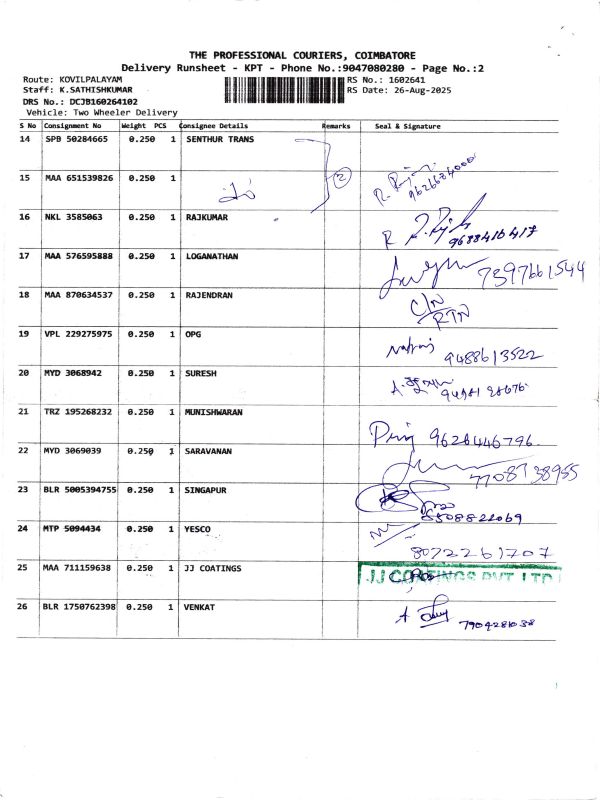 THE PROFESSIONAL COURIERS, COIMBATORE
Delivery Runsheet - KPT - Phone No.:9047080280 - Page No.:2
Route: KOVILPALAYAM
RS No.: 1602641
Staff: K.SATHISHKUMAR
RS Date: 26-Aug-2025
DRS No.: DCJB160264102
Vehicle: Two Wheeler Delivery
S No Consignment No Weight PCS Consignee Details Remarks Seal & Signature
14 SPB 50284665 0.250 1 SENTHUR TRANS
15 MAA 651539826 0.250 1 2
16 NKL 3585063 0.250 1 RAJKUMAR 9688416417
17 MAA 576595888 0.250 1 LOGANATHAN 7397661544
18 MAA 870634537 0.250 1 RAJENDRAN C/N RTN
19 VPL 229275975 0.250 1 OPG 9488613522
20 MYD 3068942 0.250 1 SURESH
21 TRZ 195268232 0.250 1 MUNISHWARAN 9626446796
22 MYD 3069039 0.250 1 SARAVANAN 7708738955
23 BLR 5005394755 0.250 1 SINGAPUR
24 MTP 5094434 0.250 1 YESCO 8072261707
25 MAA 711159638 0.250 1 JJ COATINGS JJ COATINGS PVT LTD
26 BLR 1750762398 0.250 1 VENKAT 7904281038